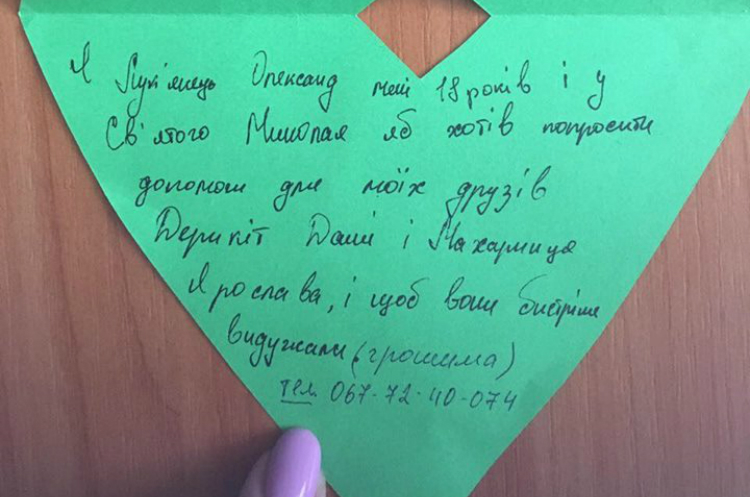 Я Лук'янець Олександ мені 18 років і у
Св'ятого Миколая яб хотів попросити
допомоги для моїх друзів
Дерипіт Данії і Махариця
Ярослава, і щоб вони бистріше
видужали (грошима)
тел. 067-72-40-074